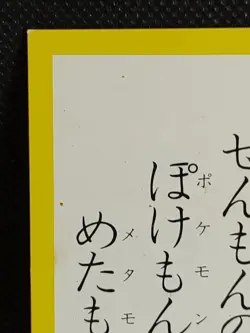 せんもんの
ぽけもん
ポケモン
めたも
メタモ